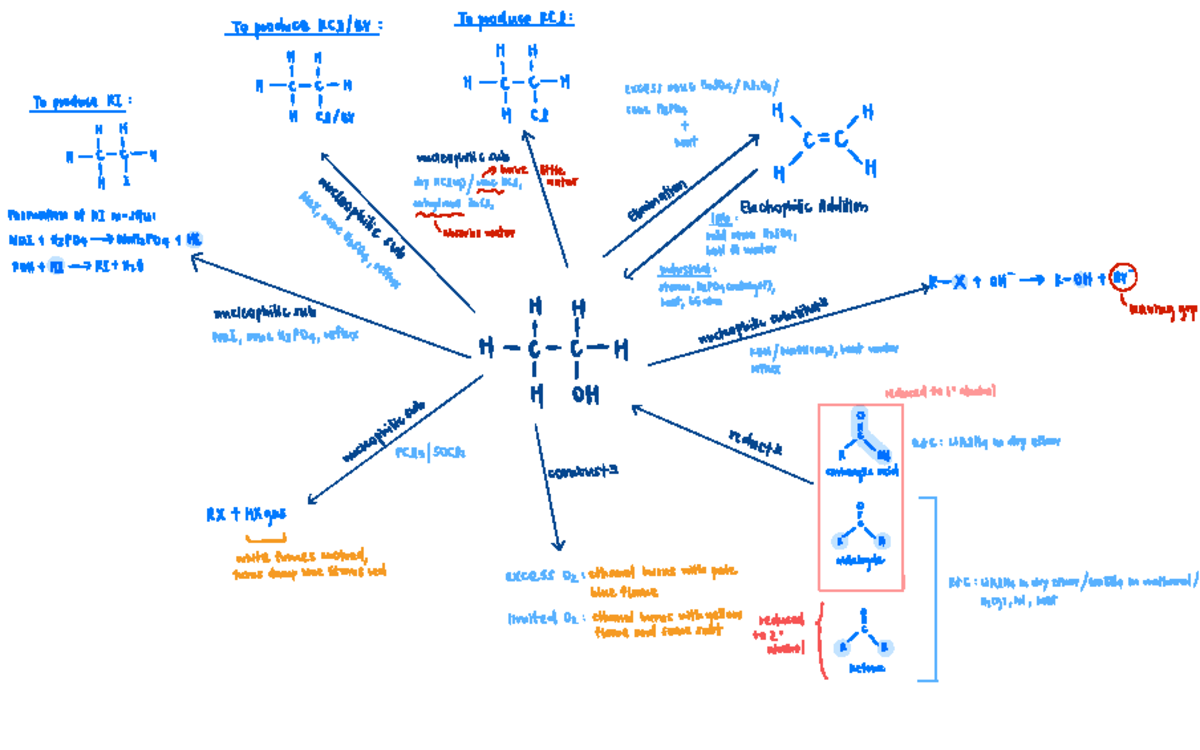 To produce RCl/Br:
To produce RCl:
To produce RI:
H H
H – C – C – H
H Cl/Br
H H
H – C – C – H
H Cl
H H
H – C – C – H
H I
excess conc H₂SO₄/Al₂O₃/
conc H₃PO₄
+
heat
H H
C = C
H H
nucleophilic sub
dry HCl(g)/conc HCl,
anhydrous ZnCl₂
little
water
absorbs water
Elimination
Electrophilic Addition
lab:
cold conc H₂SO₄,
boil in water
Industrial:
steam, H₃PO₄ (catalyst),
heat,
nucleophilic sub
NaX, conc H₂SO₄, reflux
Formation of HI in-situ:
NaI + H₃PO₄ → NaH₂PO₄ + HI
ROH + HI → RI + H₂O
nucleophilic sub
NaI, conc H₃PO₄, reflux
R – X + OH⁻ → R – OH + Br⁻
leaving grp
nucleophilic substitution
KOH/NaOH(aq), heat under
reflux
H H
H – C – C – H
H OH
nucleophilic sub
PCl₅ | SOCl₂
combust
reduct
reduced to 1° alcohol
O
C
R
carboxylic acid
R&C: LiAlH₄ in dry ether
RX + HX gas
white fumes evolved,
turns damp blue litmus red
O
C
R H
aldehyde
excess O₂: ethanol burns with pale
blue flame
limited O₂: ethanol burns with yellow
flame and forms soot
R&C: LiAlH₄ in dry ether/NaBH₄ in methanol/
H₂(g), Ni, heat
reduced
to 2°
alcohol
O
C
R R
ketone